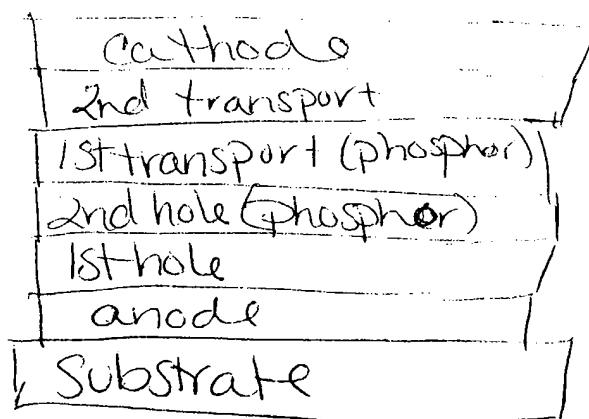 Cathode
2nd transport
1st transport (phosphor)
2nd hole (phosphor)
1st hole
anode
Substrate